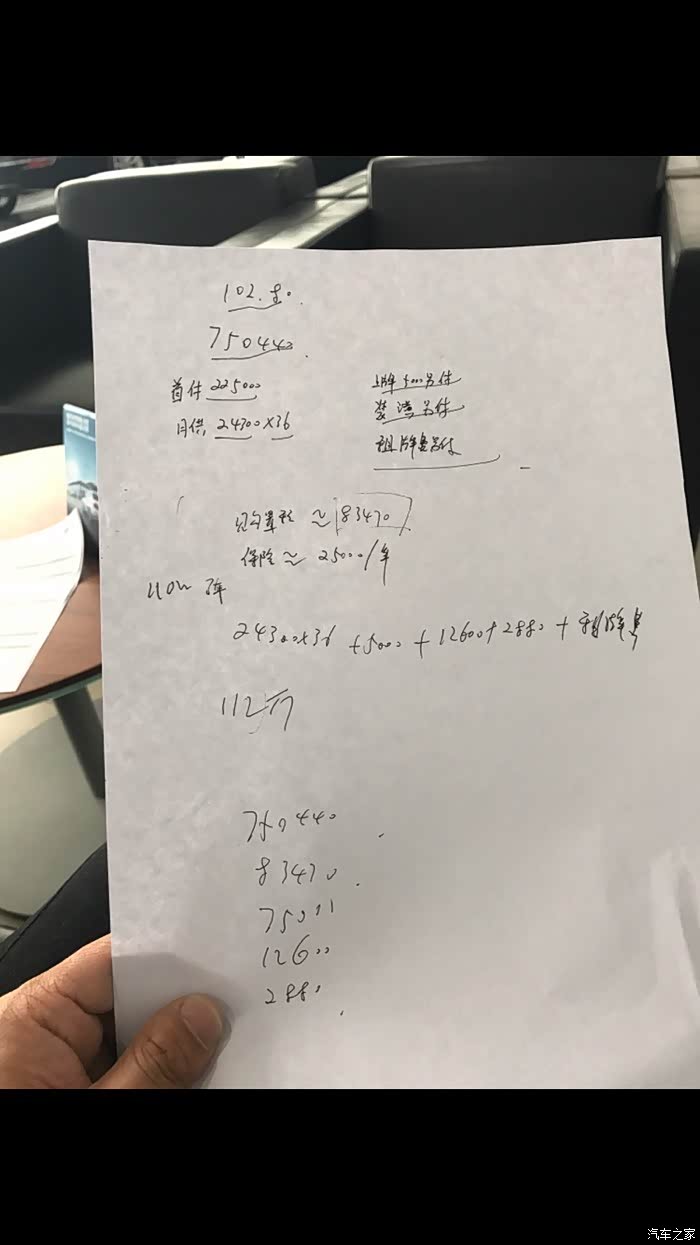 102.80.
750440.
首付 225000
月供 24300×36
上牌5000另付
装潢另付
租牌费另付
购置税 ≈ 83470
保险 ≈ 25000/年
24300×36 +5000 + 12600+2880 + 租牌费
112万
750440
83470
75000
12600
2880
汽车之家